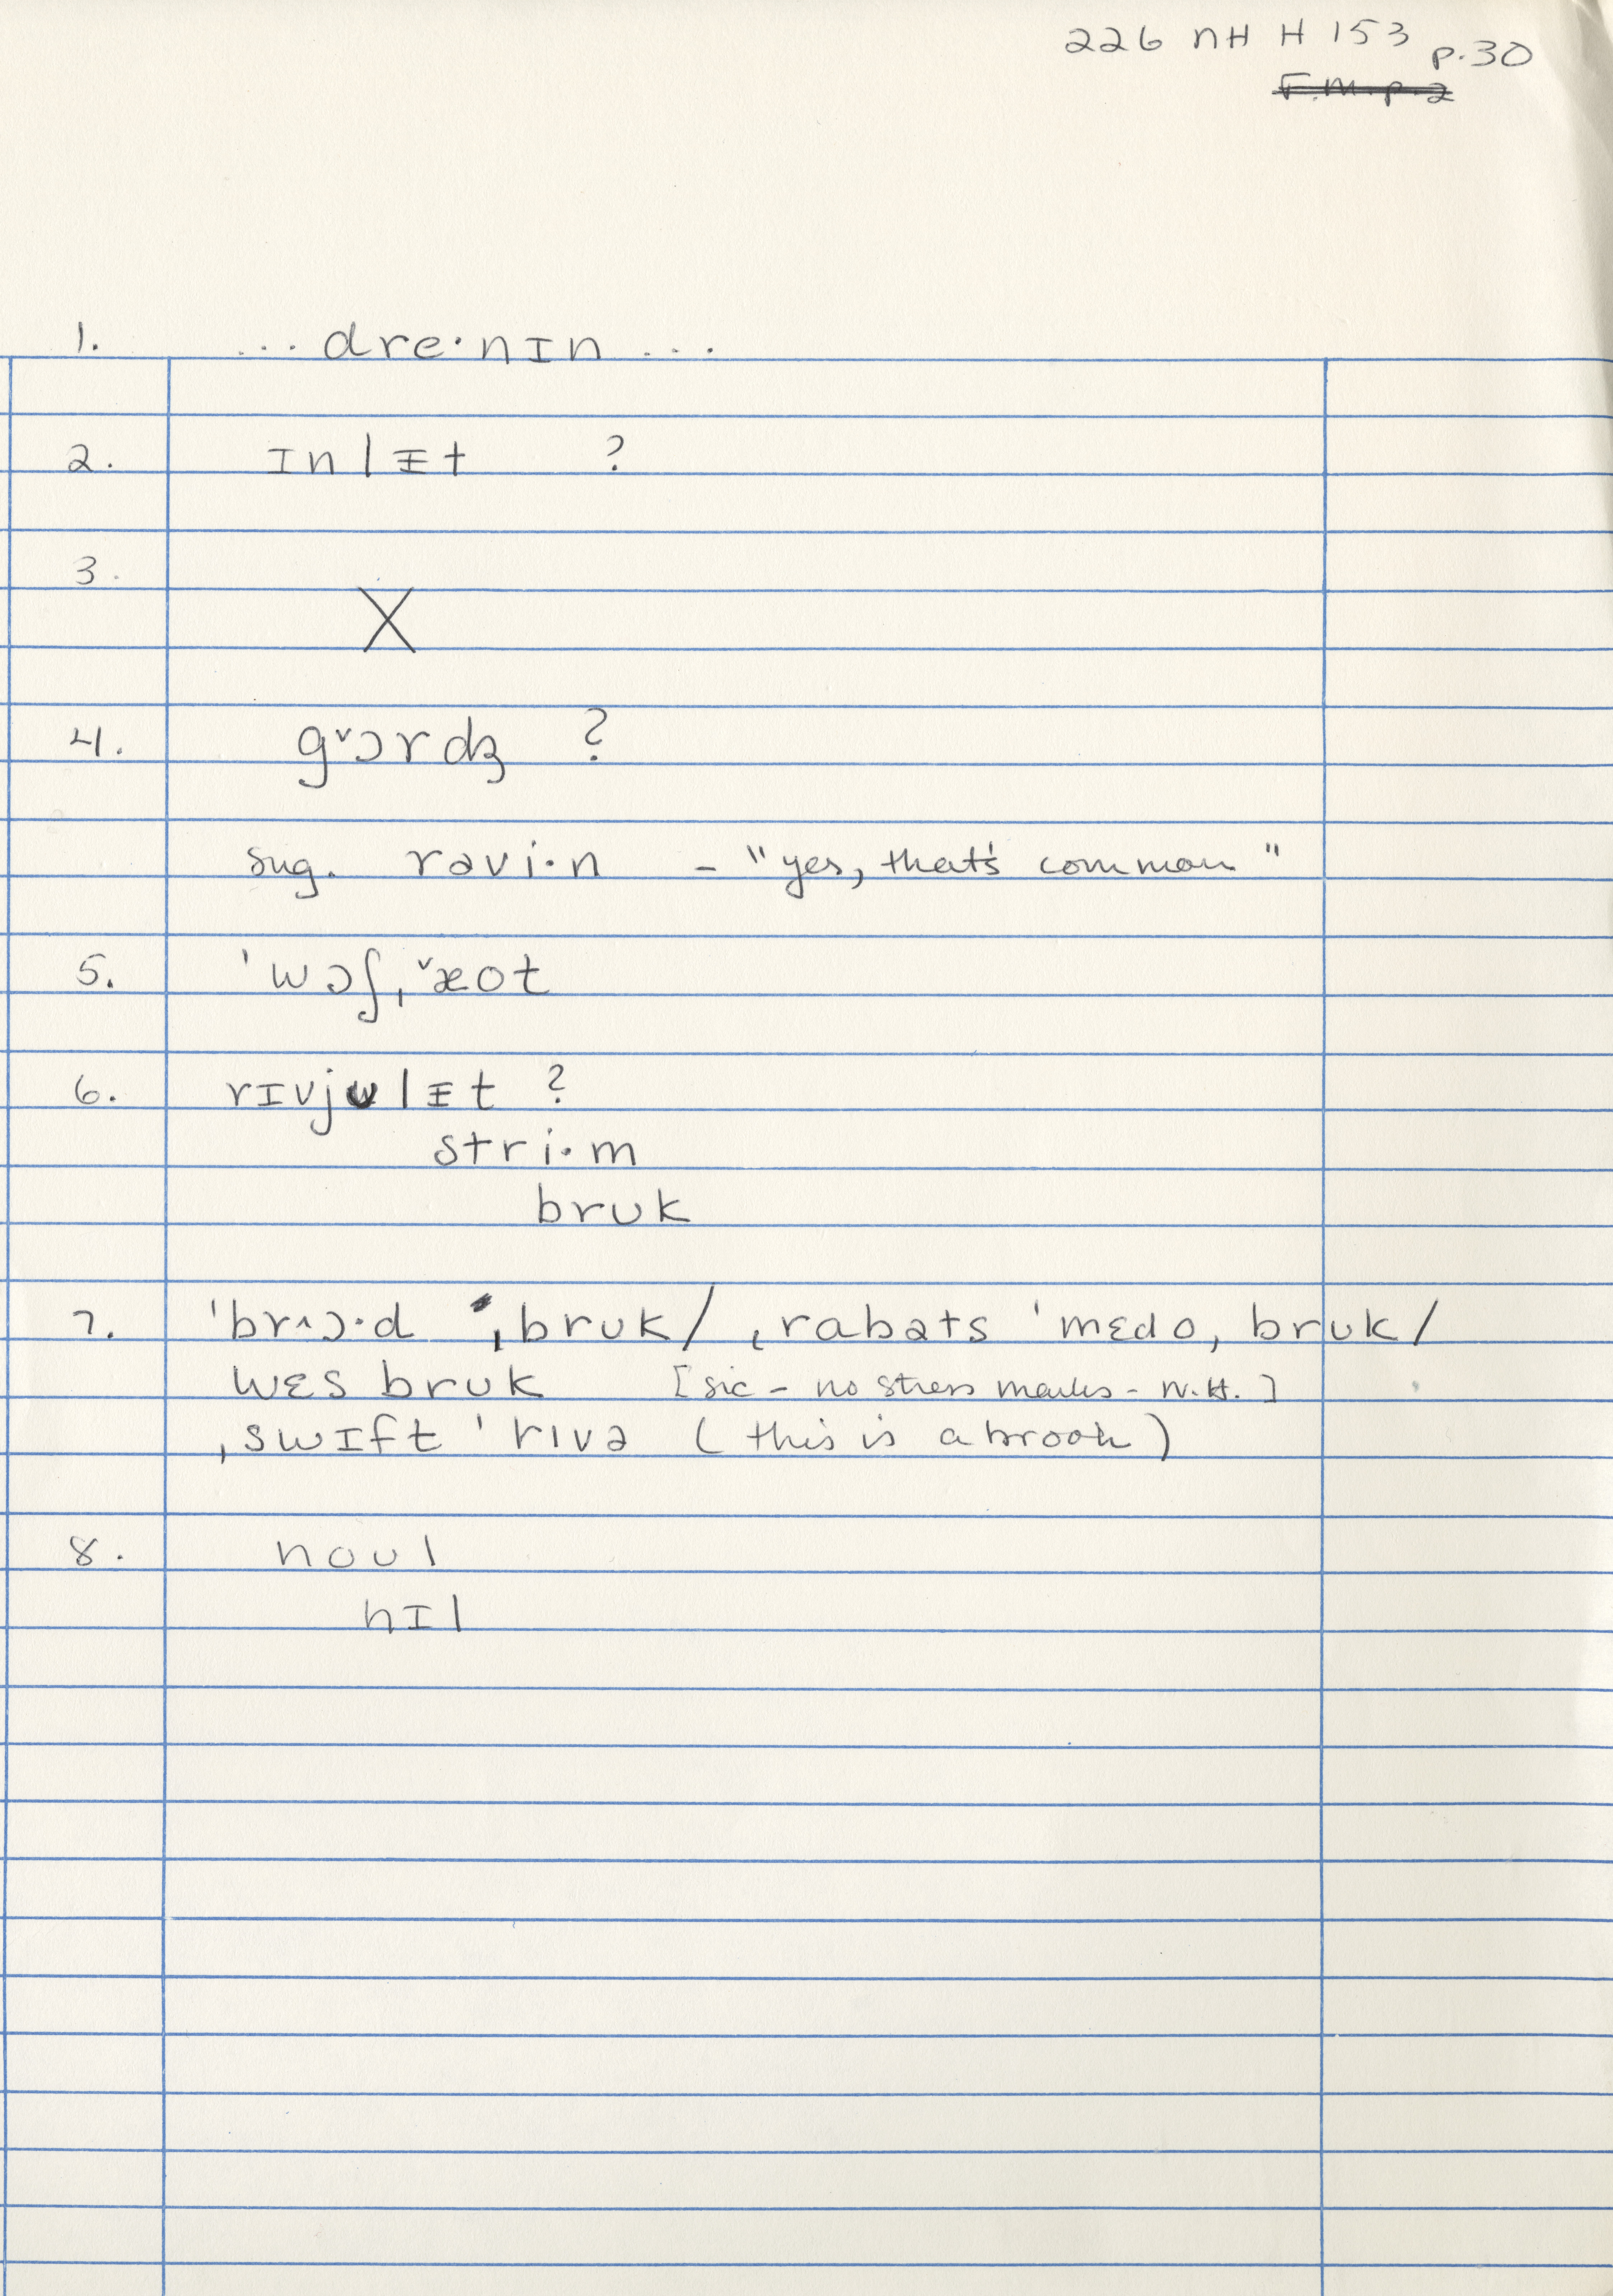 226 NH H 153 p.30
F.m. p. 2
1. ... dre·nɪn ...
2. ɪnlᵻt ?
3. X
4. g˅ɔrdʒ ?
sug. ravi·n – "yes, that's common"
5. ˈwɔʃˌ˅æot
6. rɪvjʊlᵻt ?
stri·m
brʊk
7. ˈbr˄ɔ·d ˌbrʊk / ˌrabəts ˈmɛdoˌ brʊk /
wɛs brʊk [sic – no stress marks – N.H.]
ˌswɪft ˈrɪvə (this is a brook)
8. noʊl
hɪl